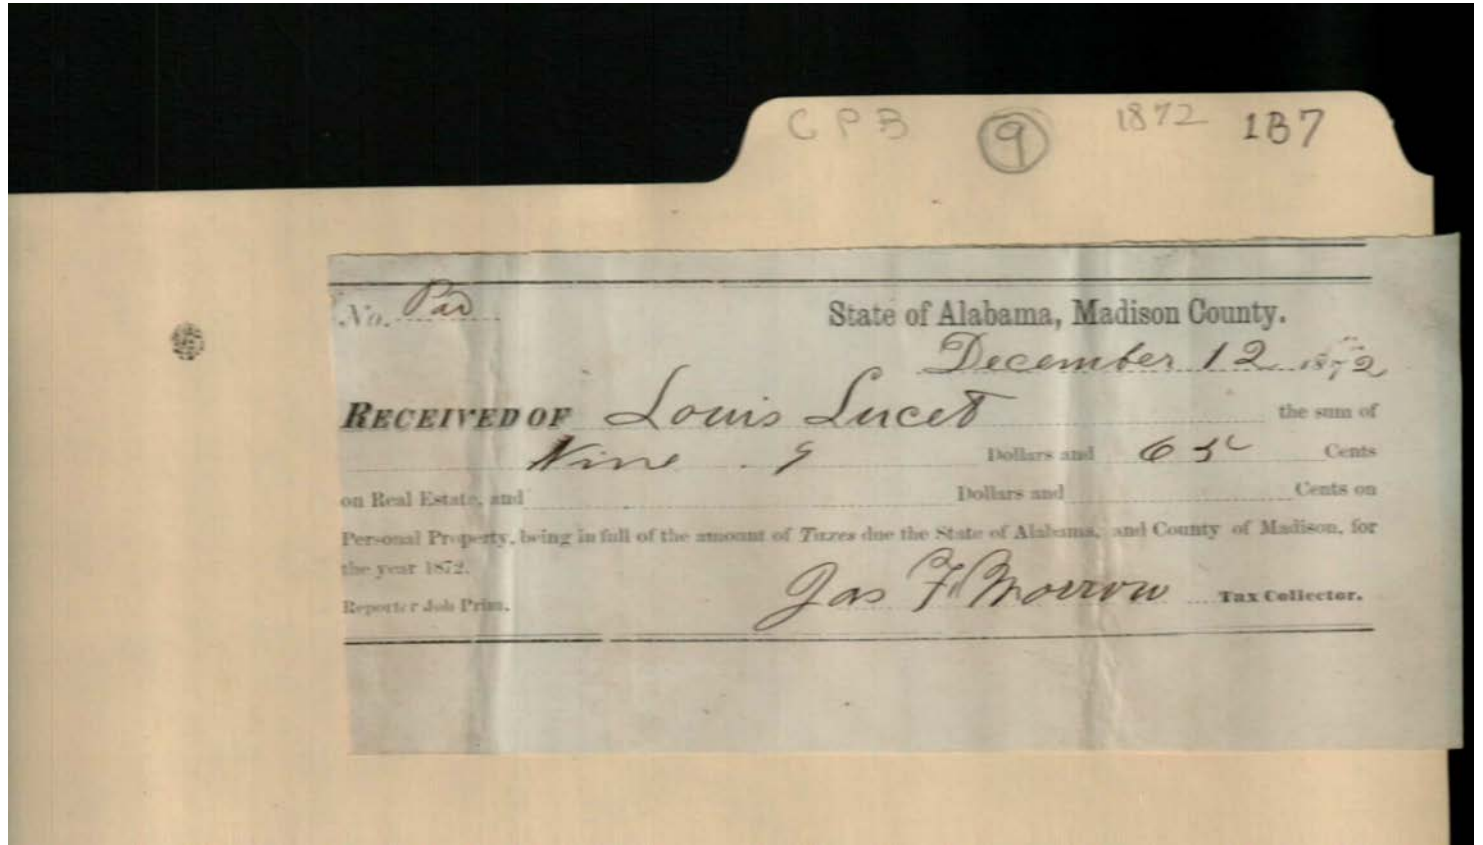 CPB 9 1872 1B7
No. Pad
State of Alabama, Madison County.
December 12 1872
RECEIVED OF Louis Lucet the sum of
Nine 9 Dollars and 65c Cents
on Real Estate, and Dollars and Cents on
Personal Property, being in full of the amount of Taxes due the State of Alabama, and County of Madison, for
the year 1872.
Jas F. Morrow Tax Collector.
Reporter Job Print.